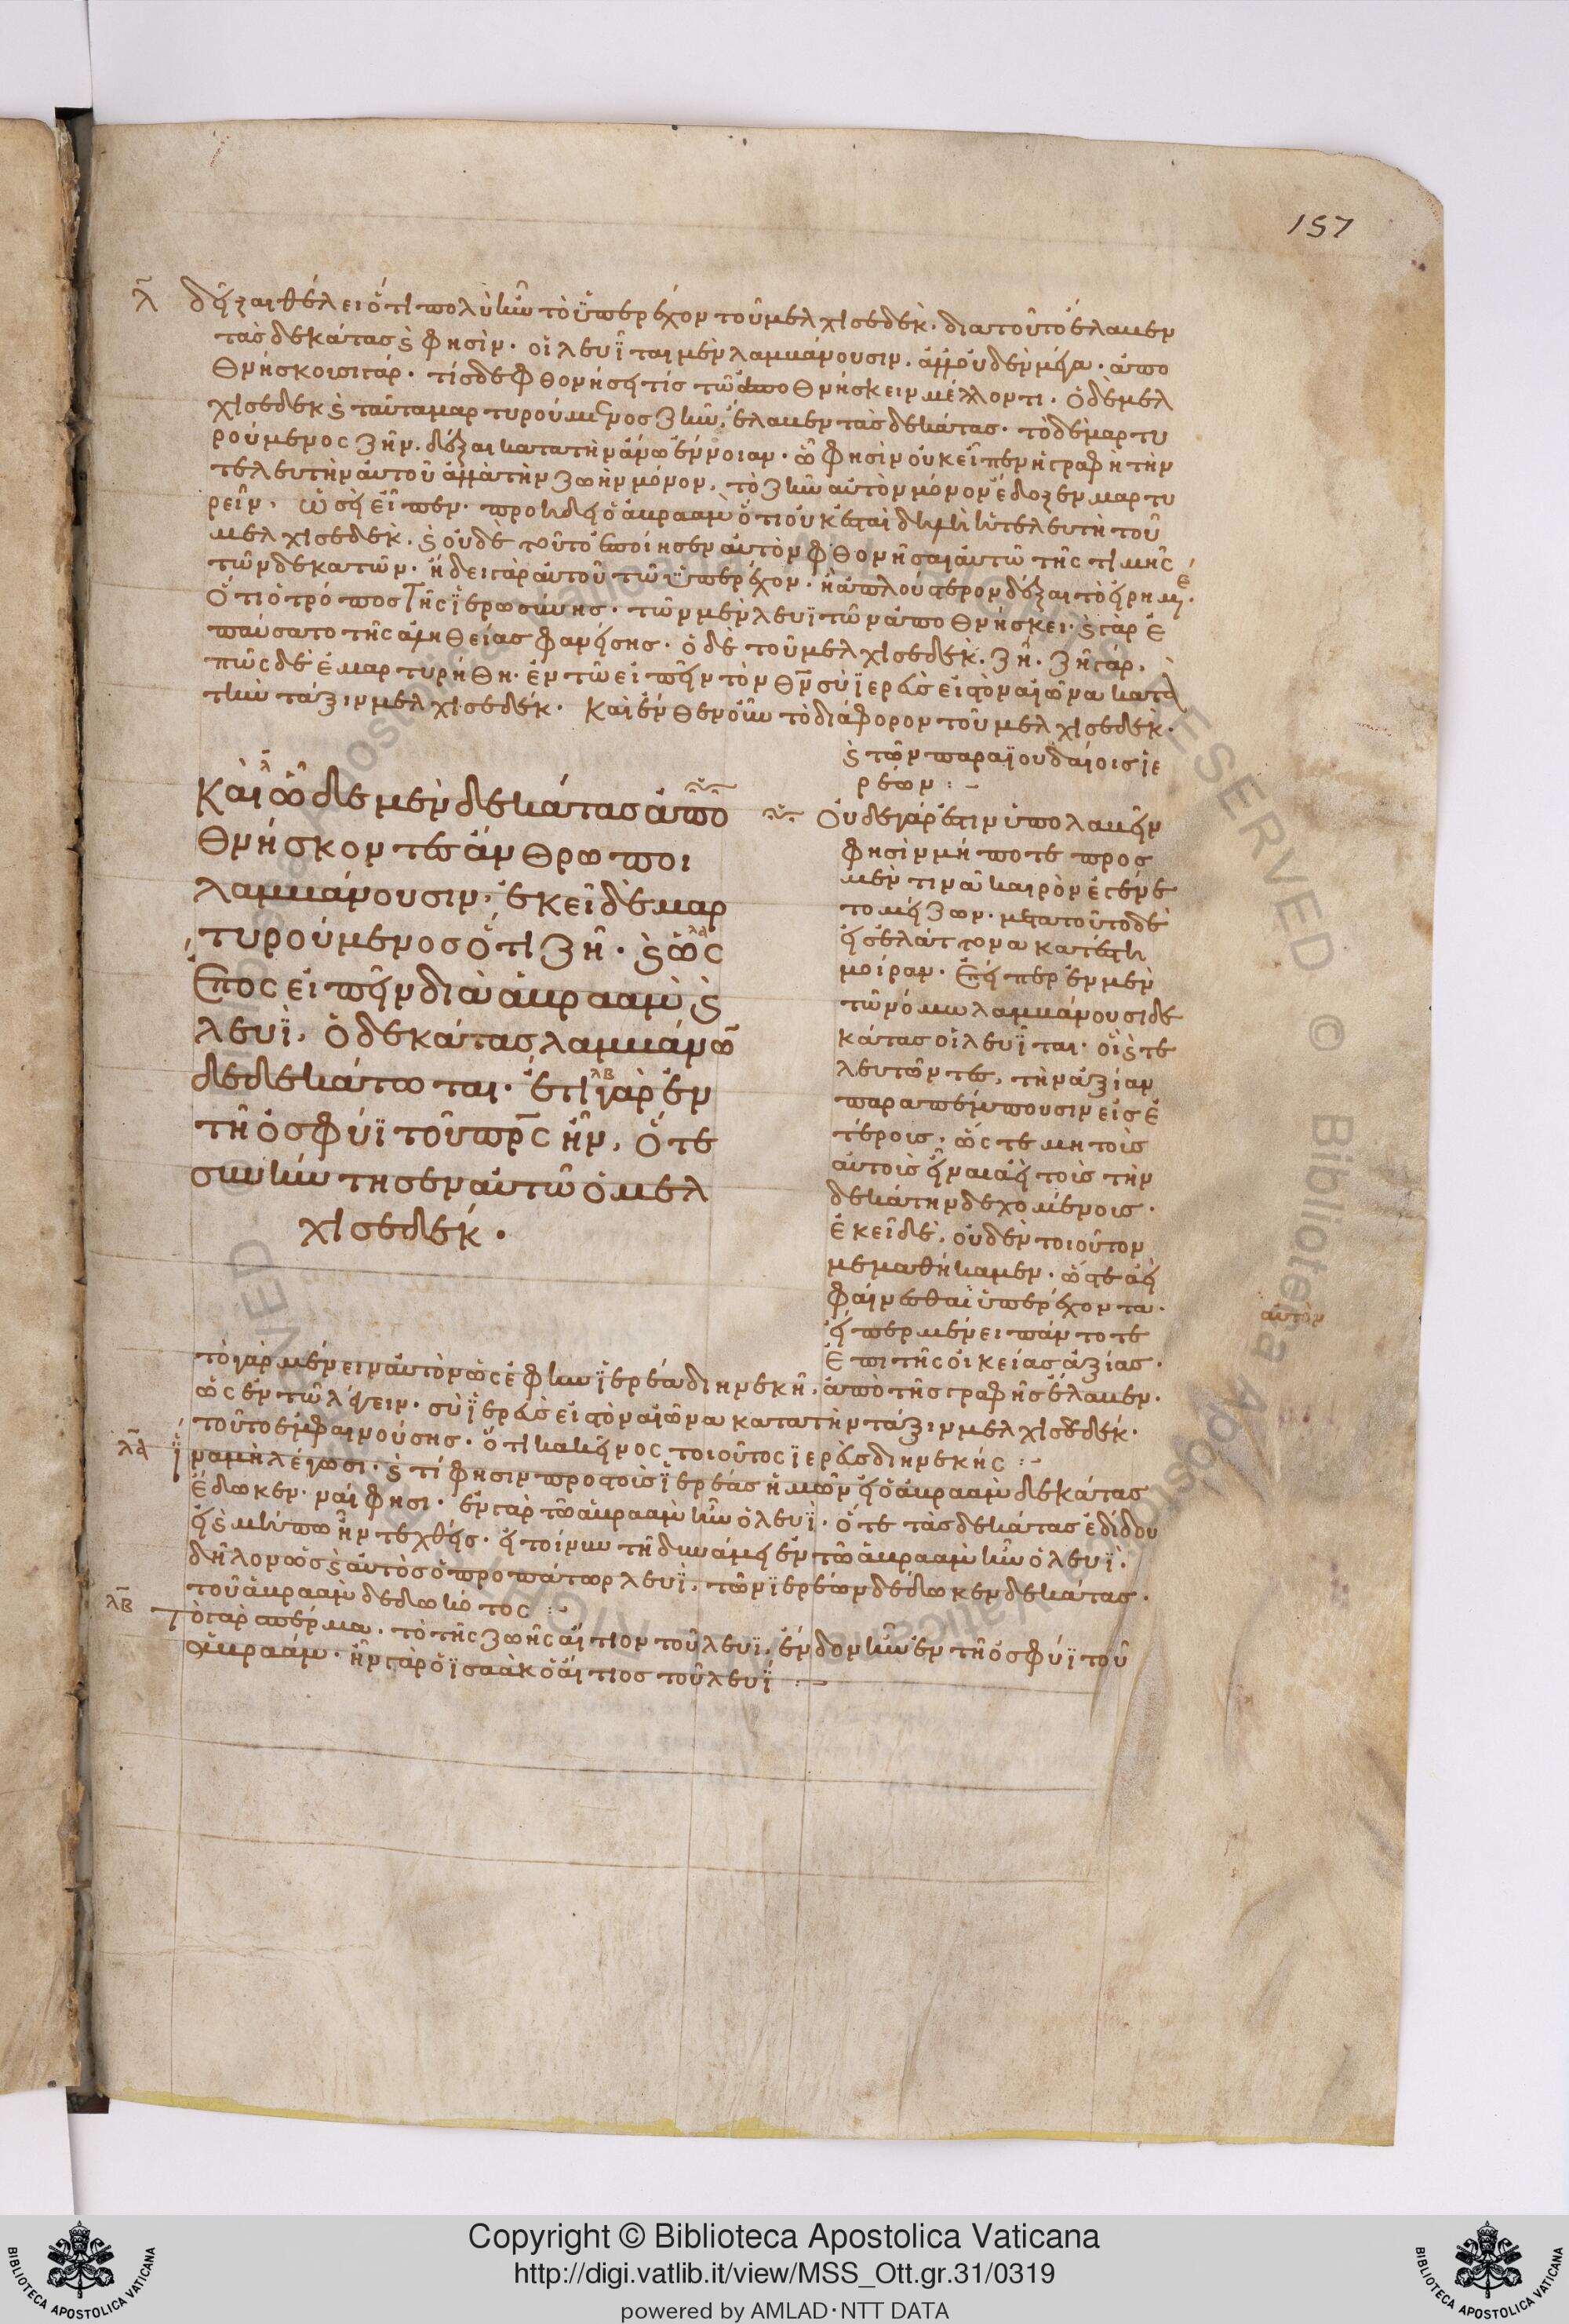 157
λ̄ δεῖξαι θέλει ὅτι πολὺ ἦν τὸ ὑπερέχον τοῦ μελχισεδέκ. διατοῦτο ἔλαβεν
τὰς δεκάτας ϗ φησὶν. οἱ λευῗται μὲν λαμβάνουσιν. ἀλλ' οὐδὲν μέγα. ἀπο
θνήσκουσι γάρ. τίς δὲ φθονήσει τίς τῶ ἀποθνήσκειν μέλλοντι. ὁ δὲ μελ
χισεδὲκ ϗ ταῦτα μαρτυρούμενος ζῆν, ἔλαβεν τὰς δεκάτας. τὸ δὲ μαρτυ
ρούμενος ζῆν. δέξαι κατα τὴν ἄνω ἔννοιαν. ὧ φησὶν οὐκ εἶπεν ἡ γραφὴ τὴν
τελευτὴν αὐτοῦ ἀλλὰ τὴν ζωὴν μόνον, τὸ ζῆν αὐτὸν μόνον ἔδοξεν μαρτυ
ρεῖν. ὡσεὶ εἶπεν. προήδει ὁ ἀβραὰμ ὅτι οὐκ ἔσται δήλη ἡ τελευτὴ τοῦ
μελχισεδέκ. ϗ οὐδὲ τοῦτο ἐποίησεν αὐτὸν φθονῆσαι αὐτῶ τῆς τιμῆς
τῶν δεκατῶν. ἤδει γὰρ αὐτοῦ τῶ ὑπερέχον. ἢ ἁπλούστερον δέξαι τὸ εἰρημέ.
ὅτι ὁ τρόπος τῆς ϊερωσύνης. τῶν μὲν λευϊτῶν ἀποθνήσκει. ϗ γὰρ ἐ
παύσατο τῆς ἀληθείας φανείσης. ὁ δὲ τοῦ μελχισεδέκ. ζῆ. ζῆ γάρ.
πῶς δὲ ἐμαρτυρήθη. ἐν τῶ εἰπεῖν τὸν θν̄ σὺ ϊερεὺς εἰς τὸν αἰῶνα κατὰ
τὴν τάξιν μελχισεδέκ. Καὶ ἔνθεν οὖν τὸ διάφορον τοῦ μελχισεδέκ.
ϗ τῶν παρα ϊουδαίοις ϊε
ρέων :-
Καὶ ὧδε μὲν δεκάτας ἀπο
θνήσκοντες ἄνθρωποι
λαμβάνουσιν, ἐκεῖ δὲ μαρ
τυρούμενος ὅτι ζῆ. ϗ ὡς
ἔπος εἰπεῖν διὰ ἀβραὰμ ϗ
λευῒ, ὁ δεκάτας λαμβάνω
δεδεκάτωται. ἔτι γὰρ ἐν
τῆ ὀσφύϊ τοῦ πρ̄ς ἦν, ὅτε
συνήντησεν αὐτῶ ὁ μελ
χισεδέκ.
Οὐδε γάρ ἐστιν ὑπολαβεῖν
φησὶν μή ποτε προς
μέν τινα καιρὸν ἐγένε
το μείζων. μετα τοῦτο δὲ
εἰς ἐλάττονα κατέστη
μοίραν. Ἐπείπερ ἐν μὲν
τῶ νόμω λαμβάνουσι δε
κάτας οἱ λευῗται. οἳ ϗ τε
λευτῶντες, τὴν ἀξίαν
παραπέμπουσιν εἰς ἑ
τέροις. ὥστε μη τοῖς
αὐτοῖς εἶναι ἀεὶ τοῖς τὴν
δεκάτην δεχομένοις.
ἐκεῖ δὲ, οὐδὲν τοιοῦτον
μεμαθήκαμεν. ὥστε ἀεὶ
φαίνεσθαι ὑπερέχοντα.
εἴπερ μένει πάντοτε
ἐπι τῆς οἰκείας ἀξίας.
αὐτὸν
τὸ γὰρ μένειν αὐτὸν ὡς ἔφην ϊερέα διηνεκῆ, ἀπὸ τῆς γραφῆς ἔλαβεν.
ὡς ἐν τῶ λέγειν. σὺ ϊερεὺς εἰς τὸν αἰῶνα κατα τὴν τάξιν μελχισεδέκ.
τοῦτο ἐμφαινούσης. ὅτι κακεῖνος τοιοῦτος ϊερεὺς διηνεκής :-
λᾱ ἵνα μὴ λέγωσι. ϗ τί φησιν προς τοὺς ϊερέας ἡμῶν εἰ ὁ ἀβραὰμ δεκάτας
ἔδωκεν. ναί φησι. ἐν γὰρ τῶ ἀβραὰμ ἦν ὁ λευϊ. ὅτε τὰς δεκάτας ἐδίδου
εἰ ϗ μήπω ἦν τεχθείς. εἰ τοίνυν τῆ δυνάμει ἐν τῶ ἀβραὰμ ἦν ὁ λευϊ.
δῆλον ὡς ϗ αὐτὸς ὁ προπάτωρ λευϊ, τῶν ϊερέων δέδωκεν δεκάτας.
τοῦ ἀβραὰμ δεδωκότος :-
λβ̄ Τὸ γὰρ σπέρμα. τὸ τῆς ζωῆς αἴτιον τοῦ λευϊ, ἔνδον ἦν ἐν τῆ ὀσφύϊ τοῦ
ἀβραάμ. ἦν γὰρ ὁ ϊσαὰκ ὁ αἴτιος τοῦ λευϊ :-
Copyright © Biblioteca Apostolica Vaticana
http://digi.vatlib.it/view/MSS_Ott.gr.31/0319
powered by AMLAD·NTT DATA